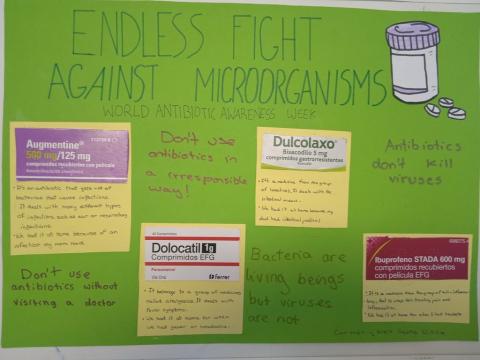 ENDLESS FIGHT
AGAINST MICROORGANISMS
WORLD ANTIBIOTIC AWARENESS WEEK
Augmentine®
500 mg/125 mg
comprimidos recubiertos con película
· It's an antibiotic that gets rid of
bacterias that cause infections.
It deals with many different types
of infections such as ear or respiratory
infections.
· We had it at home because of an
infection my mom had.
Don't use
antibiotics in
a irresponsible
way!
Dulcolaxo®
Bisacodilo 5 mg
comprimidos gastrorresistentes
· It's a medicine from the group
of laxatives. It deals with the
intestinal
· We had it at home because my
dad had intestinal
Antibiotics
don't kill
viruses
Don't use
antibiotics without
visiting a doctor
Dolocatil 1g
Comprimidos EFG
Paracetamol
Vía Oral
ferrer
· It belongs to a group of medicines
called analgesics. It deals with
fever symptoms.
· We had it at home for when we
had fever or headaches.
Bacteria are
living beings
but viruses
are not
Ibuprofeno STADA 600 mg
comprimidos recubiertos
con película EFG
· It is a medicine from the group of anti-inflam-
inflammation.